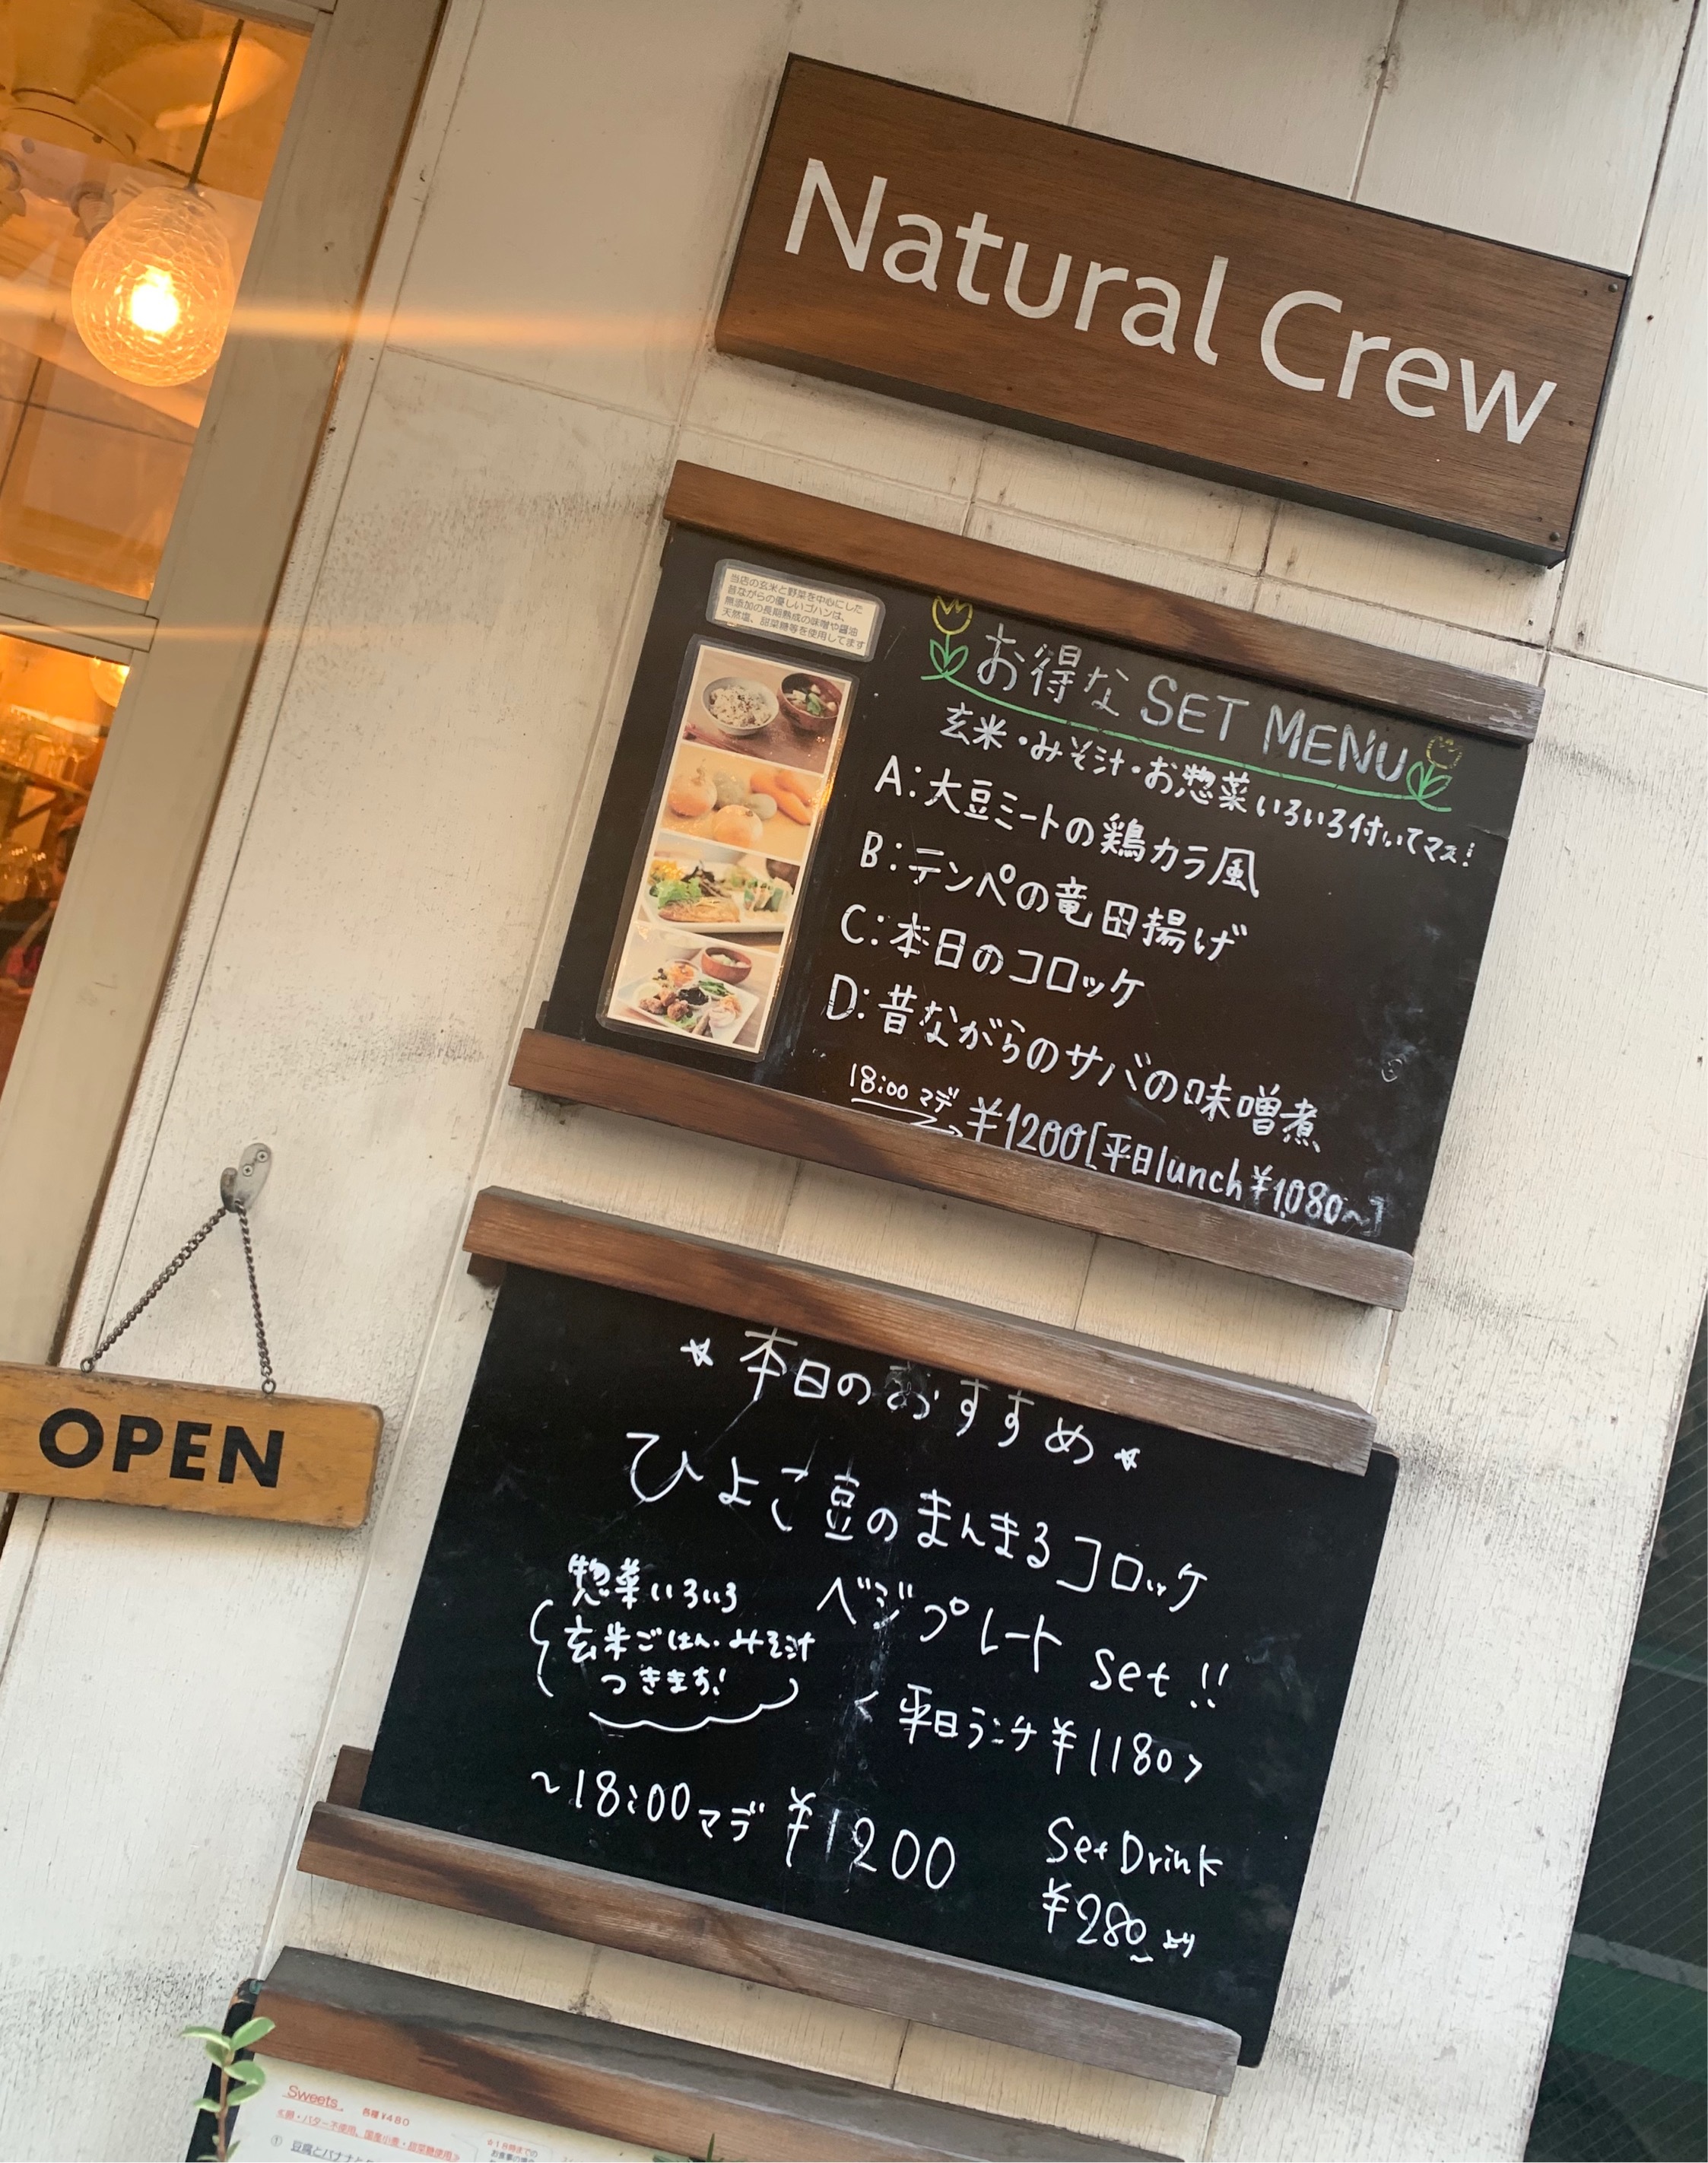 Natural Crew
当店の玄米と野菜を中心にした
昔ながらの優しいゴハンは、
無添加の長期熟成の味噌や醤油
天然塩、甜菜糖等を使用してます
お得な SET MENU
玄米・みそ汁・お惣菜いろいろ付いてマス!
A:大豆ミートの鶏カラ風
B:テンペの竜田揚げ
C:本日のコロッケ
D:昔ながらのサバの味噌煮
18:00マデ ¥1200[平日lunch¥1,080~]
OPEN
本日のおすすめ
ひよこ豆のまんまるコロッケ
ベジプレート set!!
惣菜いろいろ
玄米ごはん・みそ汁
つきます!
<平日ランチ¥1180>
~18:00マデ ¥1200
Set Drink
¥280より
Sweets 各種¥480
≪卵・バター不使用、国産小麦・甜菜糖使用≫
① 豆腐とバナナと